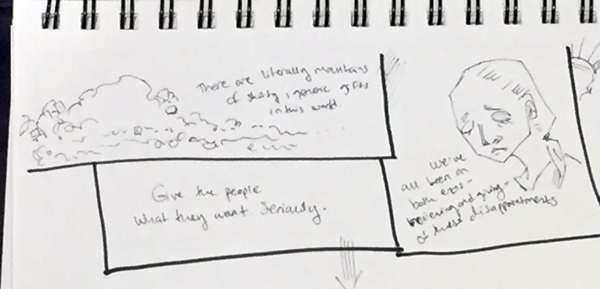 There are literally mountains
of shitty, generic gifts
in this world.
Give the people
what they want. Seriously.
We've
all been on
both ends-
receiving and giving-
of these disappointments